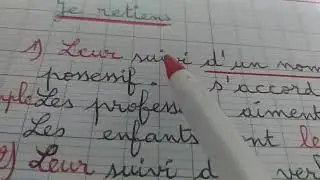 Je retiens
1) Leur suivi d'un nom
possessif. s'accord
Les profess aiment
Les enfants nt le
2) Leur suivi d ver